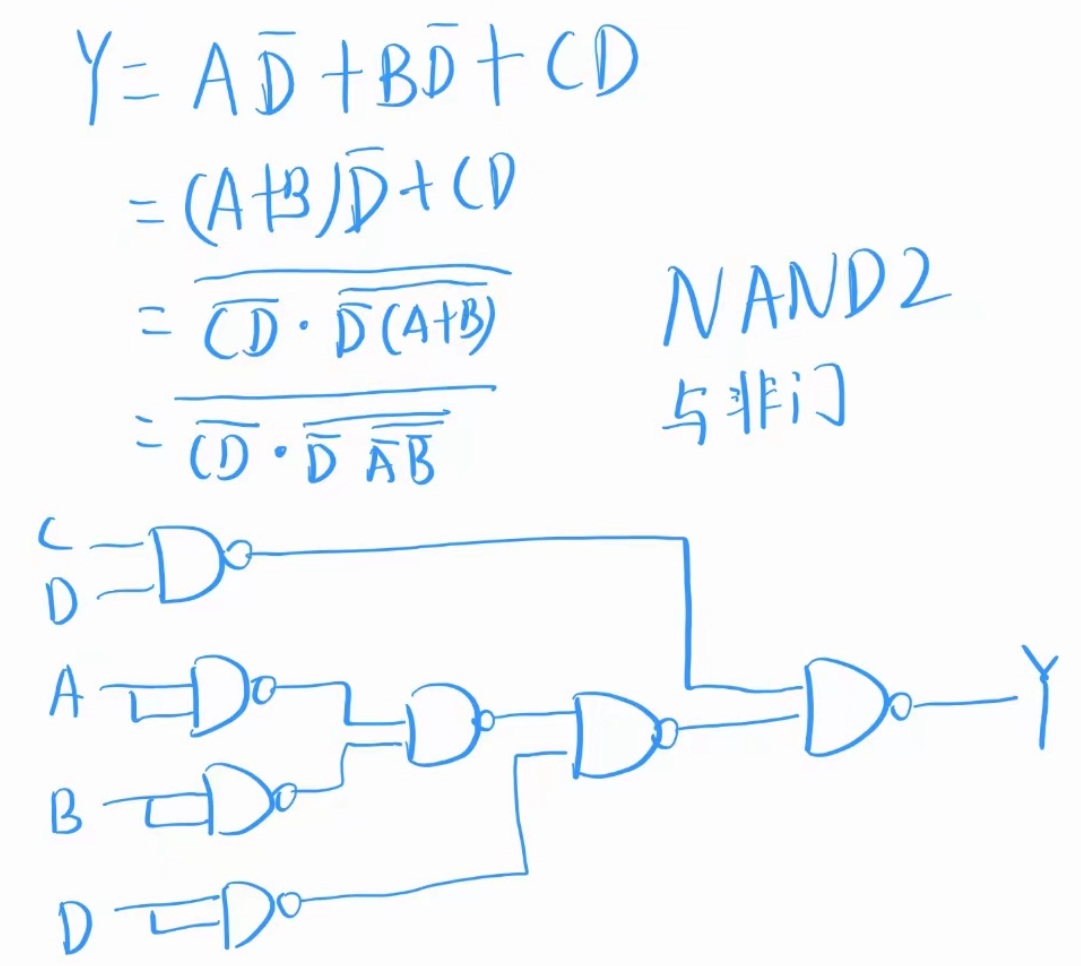 Y = AD̅ + BD̅ + CD
= (A+B)D̅ + CD
= \overline{\overline{CD} · \overline{D̅(A+B)}}
= \overline{\overline{CD} · \overline{D̅ \overline{A̅ B̅}}}
NAND2
与非门
C
D
A
B
D
Y